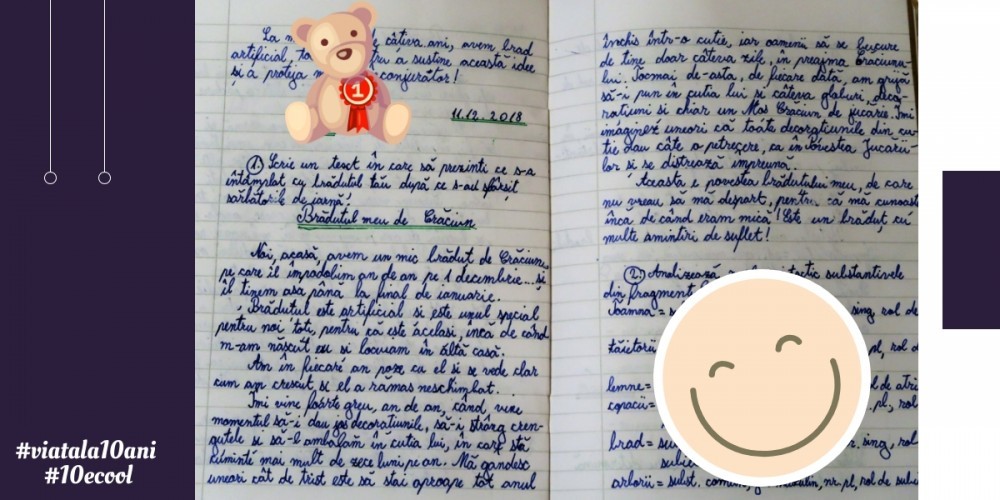 La m câtiva ani, avem brad
artificial, to tru a sustine această idee
și a proteja m conjurător!
11.12.2018
1. Scrie un text în care să prezinti ce s-a
întâmplat cu brădutul tău după ce s-au sfârsit
sărbătorile de iarnă!
Brădutul meu de Crăciun
Noi, acasă, avem un mic brădut de Crăciun,
pe care îl împodobim an de an pe 1 decembrie... și
îl tinem asa până la final de ianuarie.
Brădutul este artificial si este unul special
pentru noi toti, pentru că este acelasi, încă de când
m-am născut eu si locuiam în altă casă.
Am în fiecare an poze cu el si se vede clar
cum am crescut si el a rămas neschimbat.
Îmi vine foarte greu, an de an, când vine
momentul să-i dau jos decoratiunile, să-i strâng cren-
gutele si să-l ambalăm în cutia lui, în care stă
cuminte mai mult de zece luni pe an. Mă gandesc
uneori cât de trist este să stai aproape tot anul
închis într-o cutie, iar oamenii să se bucure
de tine doar câteva zile, în preajma Crăciunu-
lui. Tocmai de-asta, de fiecare dată, am grijă
să-i pun în cutia lui si câteva globuri, deco-
ratiuni si chiar un Mos Crăciun de jucarie. Îmi
imaginez uneori că toate decoratiunile din cu-
tie dau câte o petrecere, ca în Povestea Jucării-
lor si se distrează împreună.
Aceasta e povestea brădutului meu, de care
nu vreau să mă despart, pentru că mă cunoaste
încă de când eram mică! Este un brăduț cu
multe amintiri de suflet!
2. Analizează tactic substantivele
din fragment
Ioamna = s sing, rol de
tăietorii pl, rol d
lemne = ol de atri
copacii = pl, rol
brad = su sing, rol
subie
arborii = subst. comun, g masculin, nr. pl, rol de subi
1
#viatala10ani
#10ecool